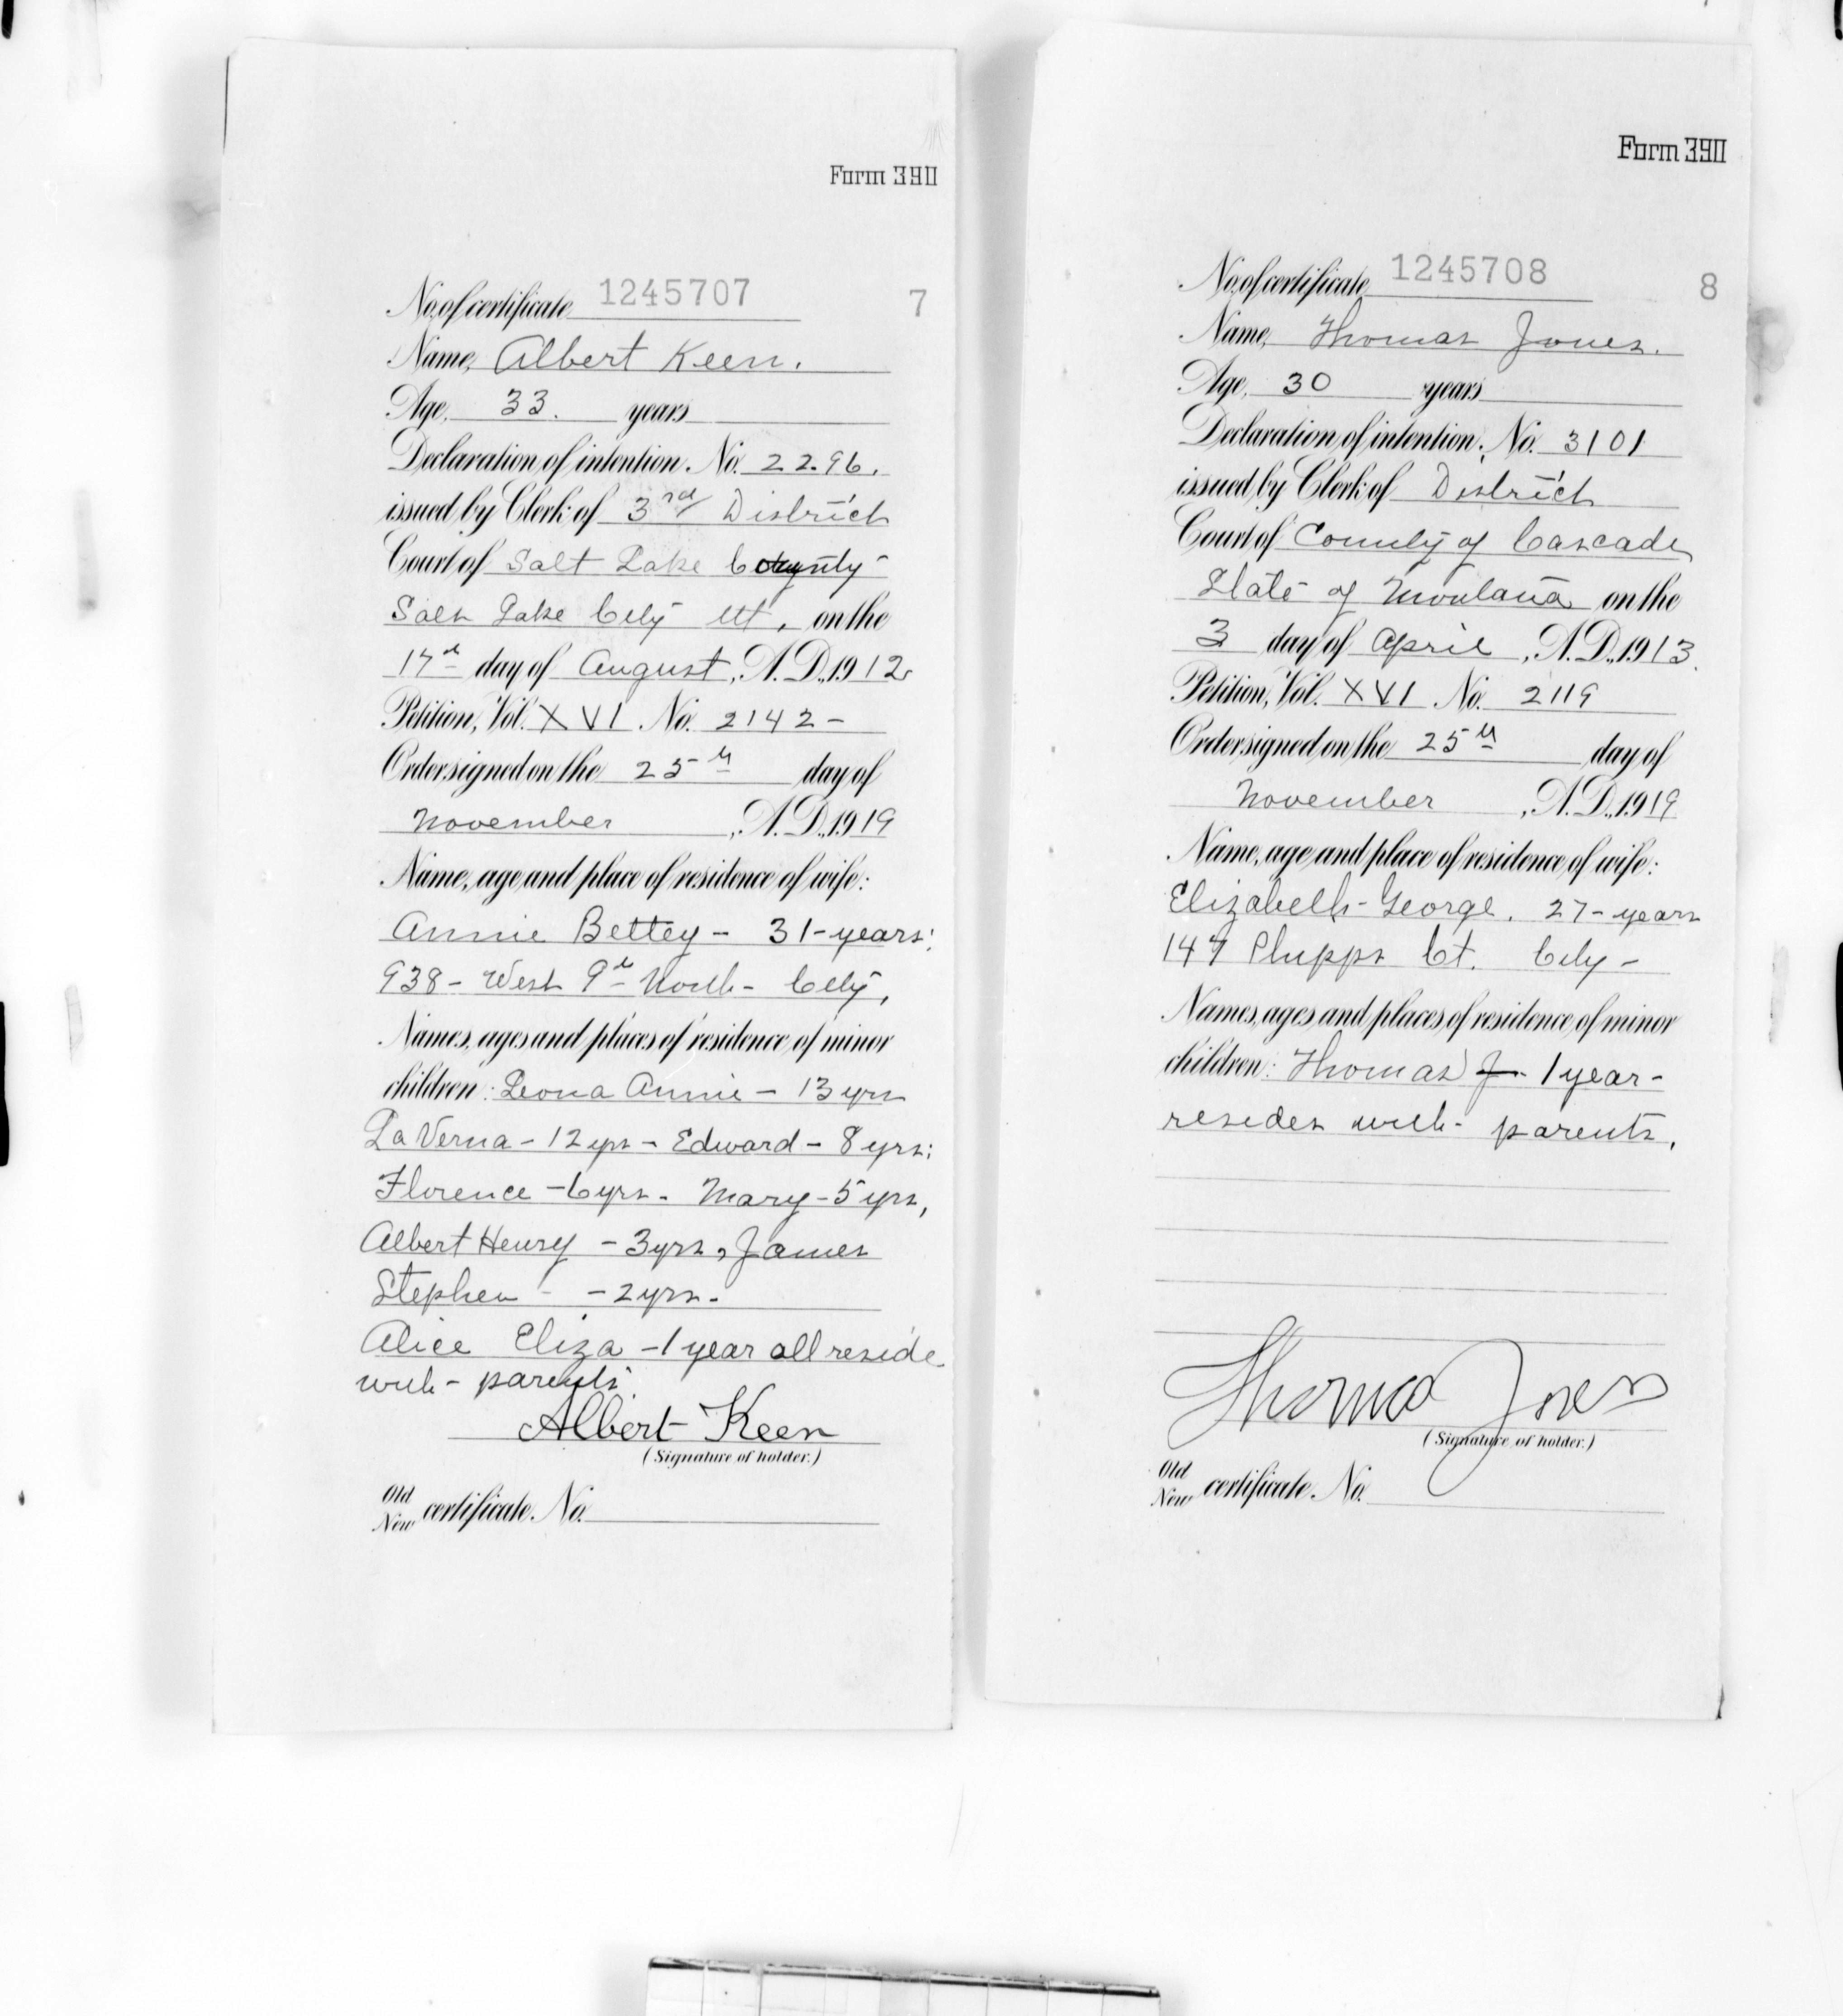 Form 390
No. of certificate 1245707 7
Name, Albert Keen.
Age, 33. years
Declaration of intention. No. 2296.
issued by Clerk of 3rd District
Court of Salt Lake County
Salt Lake City Ut, on the
17th day of August, A.D., 1912
Petition, Vol. XVI No. 2142-
Order signed on the 25th day of
November, A.D., 1919
Name, age and place of residence of wife:
Annie Bettey - 31-years;
938 - West 9th North - City,
Names, ages and places of residence of minor
children: Leona Annie - 13 yrs
LaVerna - 12 yrs - Edward - 8 yrs;
Florence - 6 yrs - Mary - 5 yrs,
Albert Henry - 3 yrs, James
Stephen - - 2 yrs -
Alice Eliza - 1 year all reside
with - parents
Albert Keen
(Signature of holder.)
Old
New certificate. No.
Form 390
No. of certificate 1245708 8
Name, Thomas Jones.
Age, 30 years
Declaration of intention. No. 3101
issued by Clerk of District
Court of County of Cascade
State of Montana on the
3 day of April, A.D., 1913.
Petition, Vol. XVI No. 2119
Order signed on the 25th day of
November, A.D., 1919
Name, age and place of residence of wife:
Elizabeth George. 27-years
147 Ct. City -
Names, ages and places of residence of minor
children: Thomas J - 1 year -
resides with - parents.
Thomas Jones
(Signature of holder.)
Old
New certificate. No.